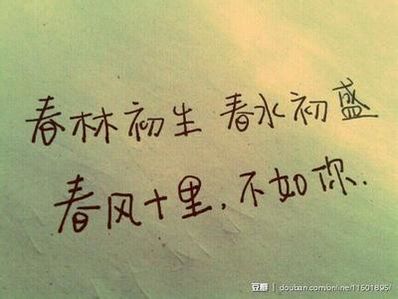 春林初生 春水初盛
春风十里，不如你.
豆瓣 douban.com/online/11601895/